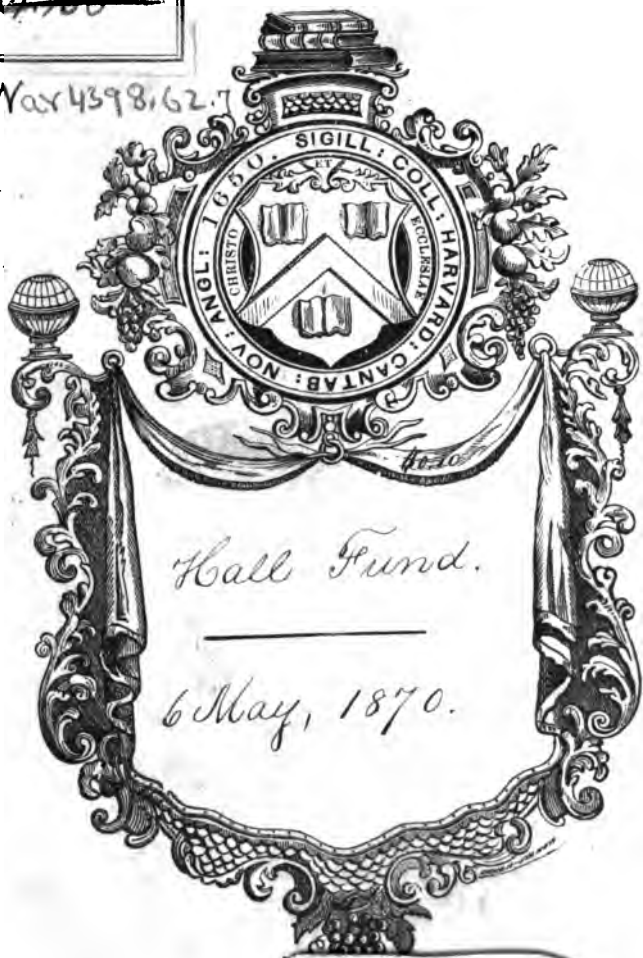 Nav 4398.62.7
SIGILL: COLL: HARVARD: CANTAB: NOV: ANGL: 1650.
ET
CHRISTO
ECCLESIAE
Hall Fund.
6 May, 1870.